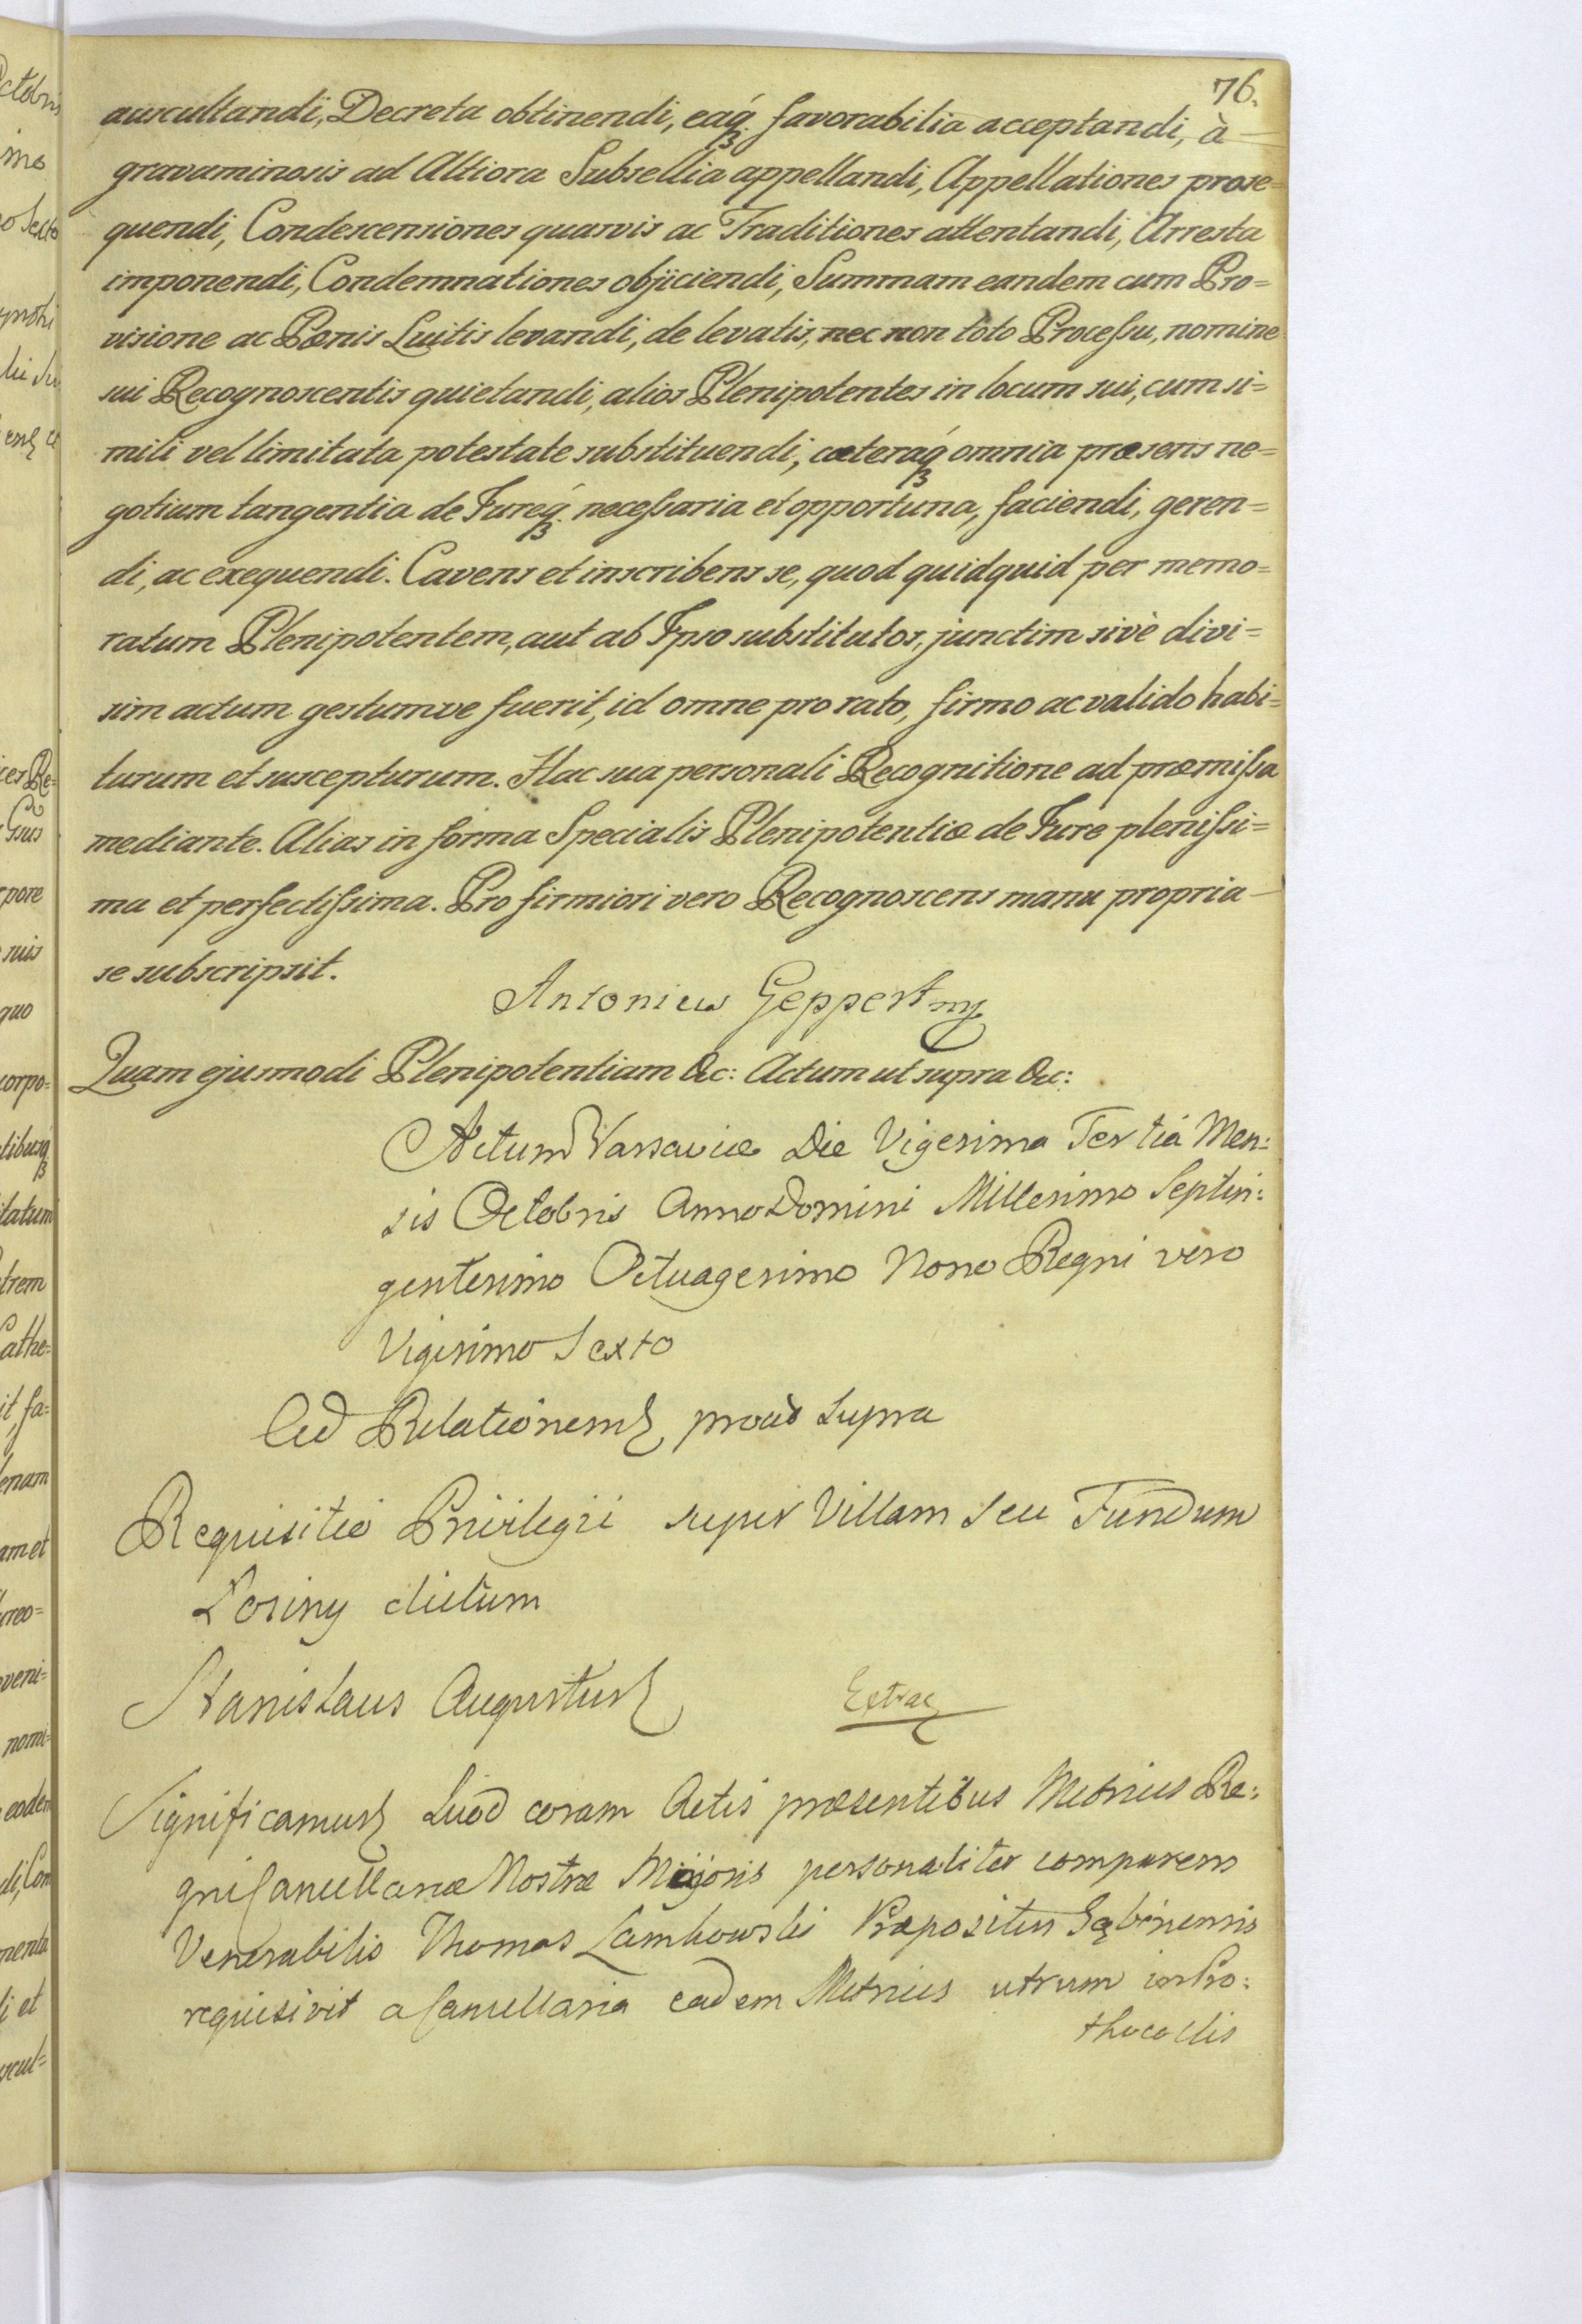 76.
auscultandi, Decreta obtinendi, eaq́ꝫ favorabilia acceptandi, à
gravaminosis ad Altiora Subsellia appellandi, Appellationes prose=
quendi, Condescensiones quasvis ac Traditiones attentandi, Arresta
imponendi, Condemnationes objiciendi, Summam eandem cum Pro=
visione ac Pœnis Luitis levandi, de levatis, nec non toto Processu, nomine
sui Recognoscentis quietandi, alios Plenipotentes in locum sui, cum si=
mili vel limitata potestate substituendi, cæteraq́ꝫ omnia præsens ne=
gotium tangentia de Jureq́ꝫ necessaria et opportuna, faciendi, geren=
di, ac exequendi. Cavens et inscribens se, quod quidquid per memo=
ratum Plenipotentem, aut ab Ipso substitutos, junctim sivè divi=
sim actum gestumve fuerit, id omne pro rato, firmo ac valido habi=
turum et suscepturum. Hac sua personali Recognitione ad præmissa
mediante. Alias in forma Specialis Plenipotentiæ de Jure plenissi=
ma et perfectissima. Pro firmiori vero Recognoscens manu propria
se subscripsit.
Antonius Geppert mp
Quam ejusmodi Plenipotentiam &c: Actum ut supra &c:
Actum Varsaviæ Die Vigesima Tertia Men:
sis Octobris Anno Domini Millesimo Septin:
gentesimo Octuagesimo Nono Regni vero
Vigesimo Sexto
Ad Relationem prout supra
Requisitio Privilegii super Villam seu Fundum
Łosiny dictum
Stanislaus Augustus
Extrac
Significamus Quod coram Actis præsentibus Metrices Re:
gni Cancellariæ Nostræ Majoris personaliter comparens
Venerabilis Thomas Præpositus Gąbinensis
requisivit a Cancellaria eadem Metrices utrum in Pro:
thocollis